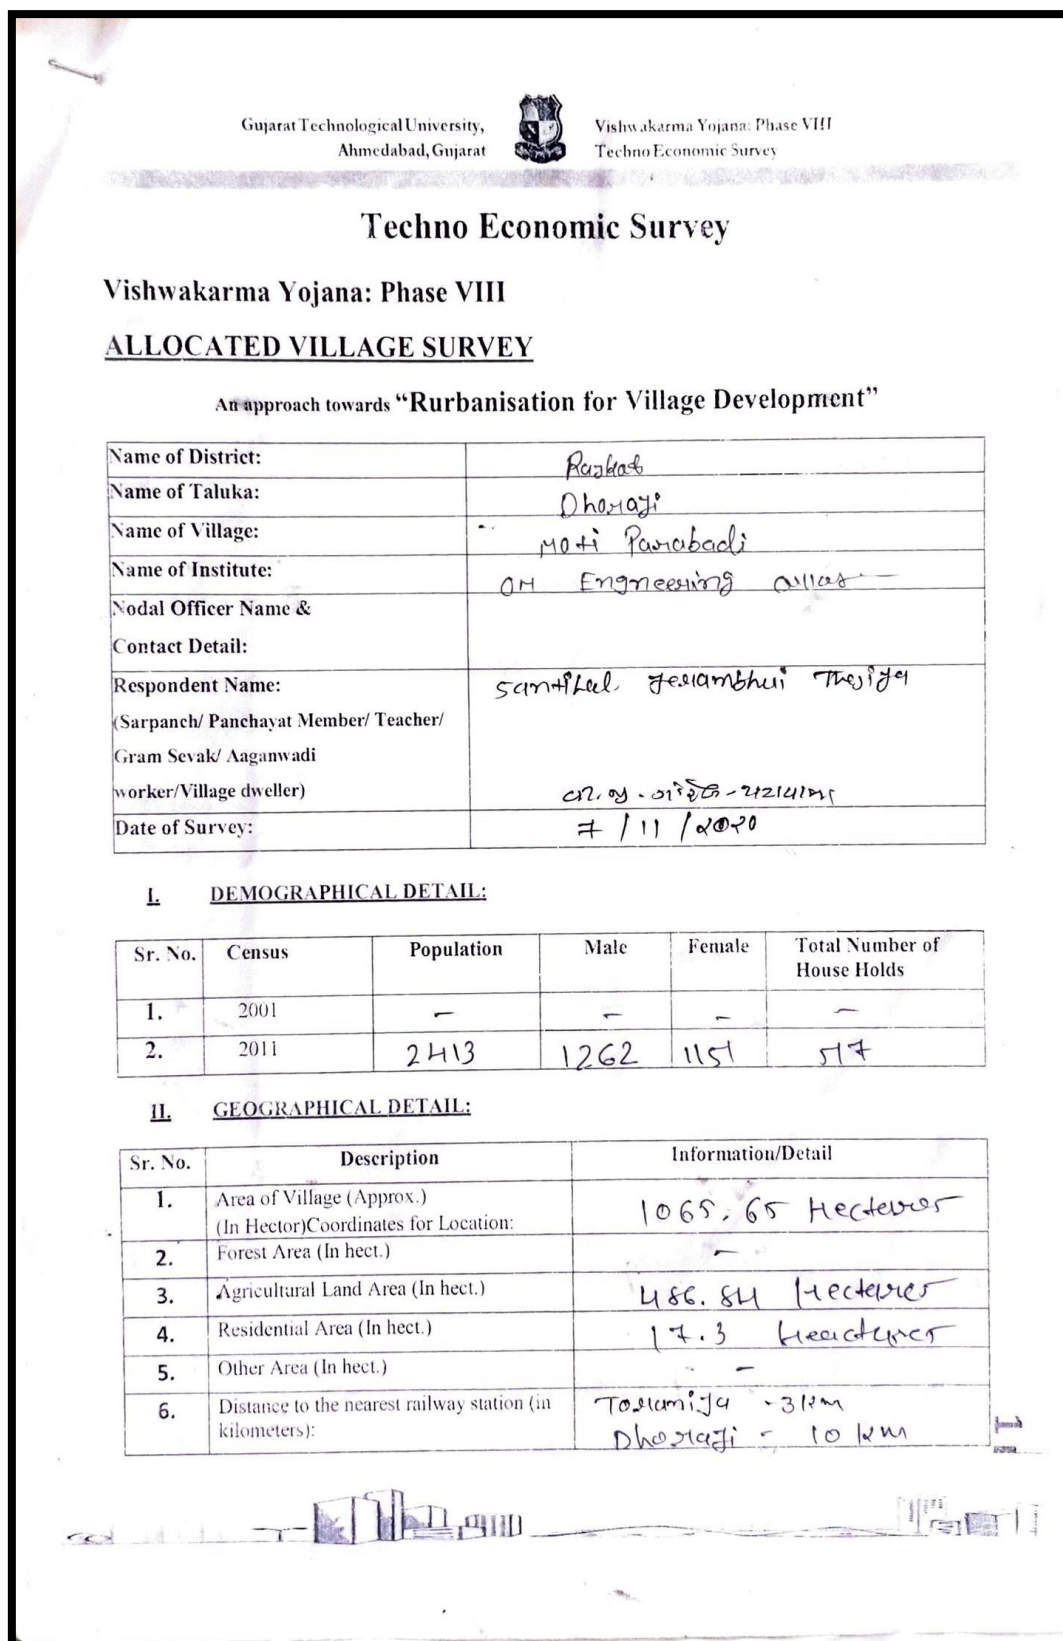 Gujarat Technological University,
Ahmedabad, Gujarat
Vishwakarma Yojana: Phase VIII
Techno Economic Survey
Techno Economic Survey
Vishwakarma Yojana: Phase VIII
ALLOCATED VILLAGE SURVEY
An approach towards “Rurbanisation for Village Development”
Name of District: Rajkot
Name of Taluka: Dhoraji
Name of Village: Moti Parabadi
Name of Institute: OM Engneering
Nodal Officer Name &
Contact Detail:
Respondent Name: Santilal
(Sarpanch/ Panchayat Member/ Teacher/
Gram Sevak/ Aaganwadi
worker/Village dweller)
Date of Survey: 7/11/૨૦૨૦
I. DEMOGRAPHICAL DETAIL:
Sr. No. Census Population Male Female Total Number of
House Holds
1. 2001 - - - -
2. 2011 2413 1262 1151 517
II. GEOGRAPHICAL DETAIL:
Sr. No. Description Information/Detail
1. Area of Village (Approx.)
(In Hector)Coordinates for Location: 1065.65
2. Forest Area (In hect.) -
3. Agricultural Land Area (In hect.) 486.84
4. Residential Area (In hect.) 17.3
5. Other Area (In hect.) -
6. Distance to the nearest railway station (in - 3 km
kilometers): Dhoraji - 10 km